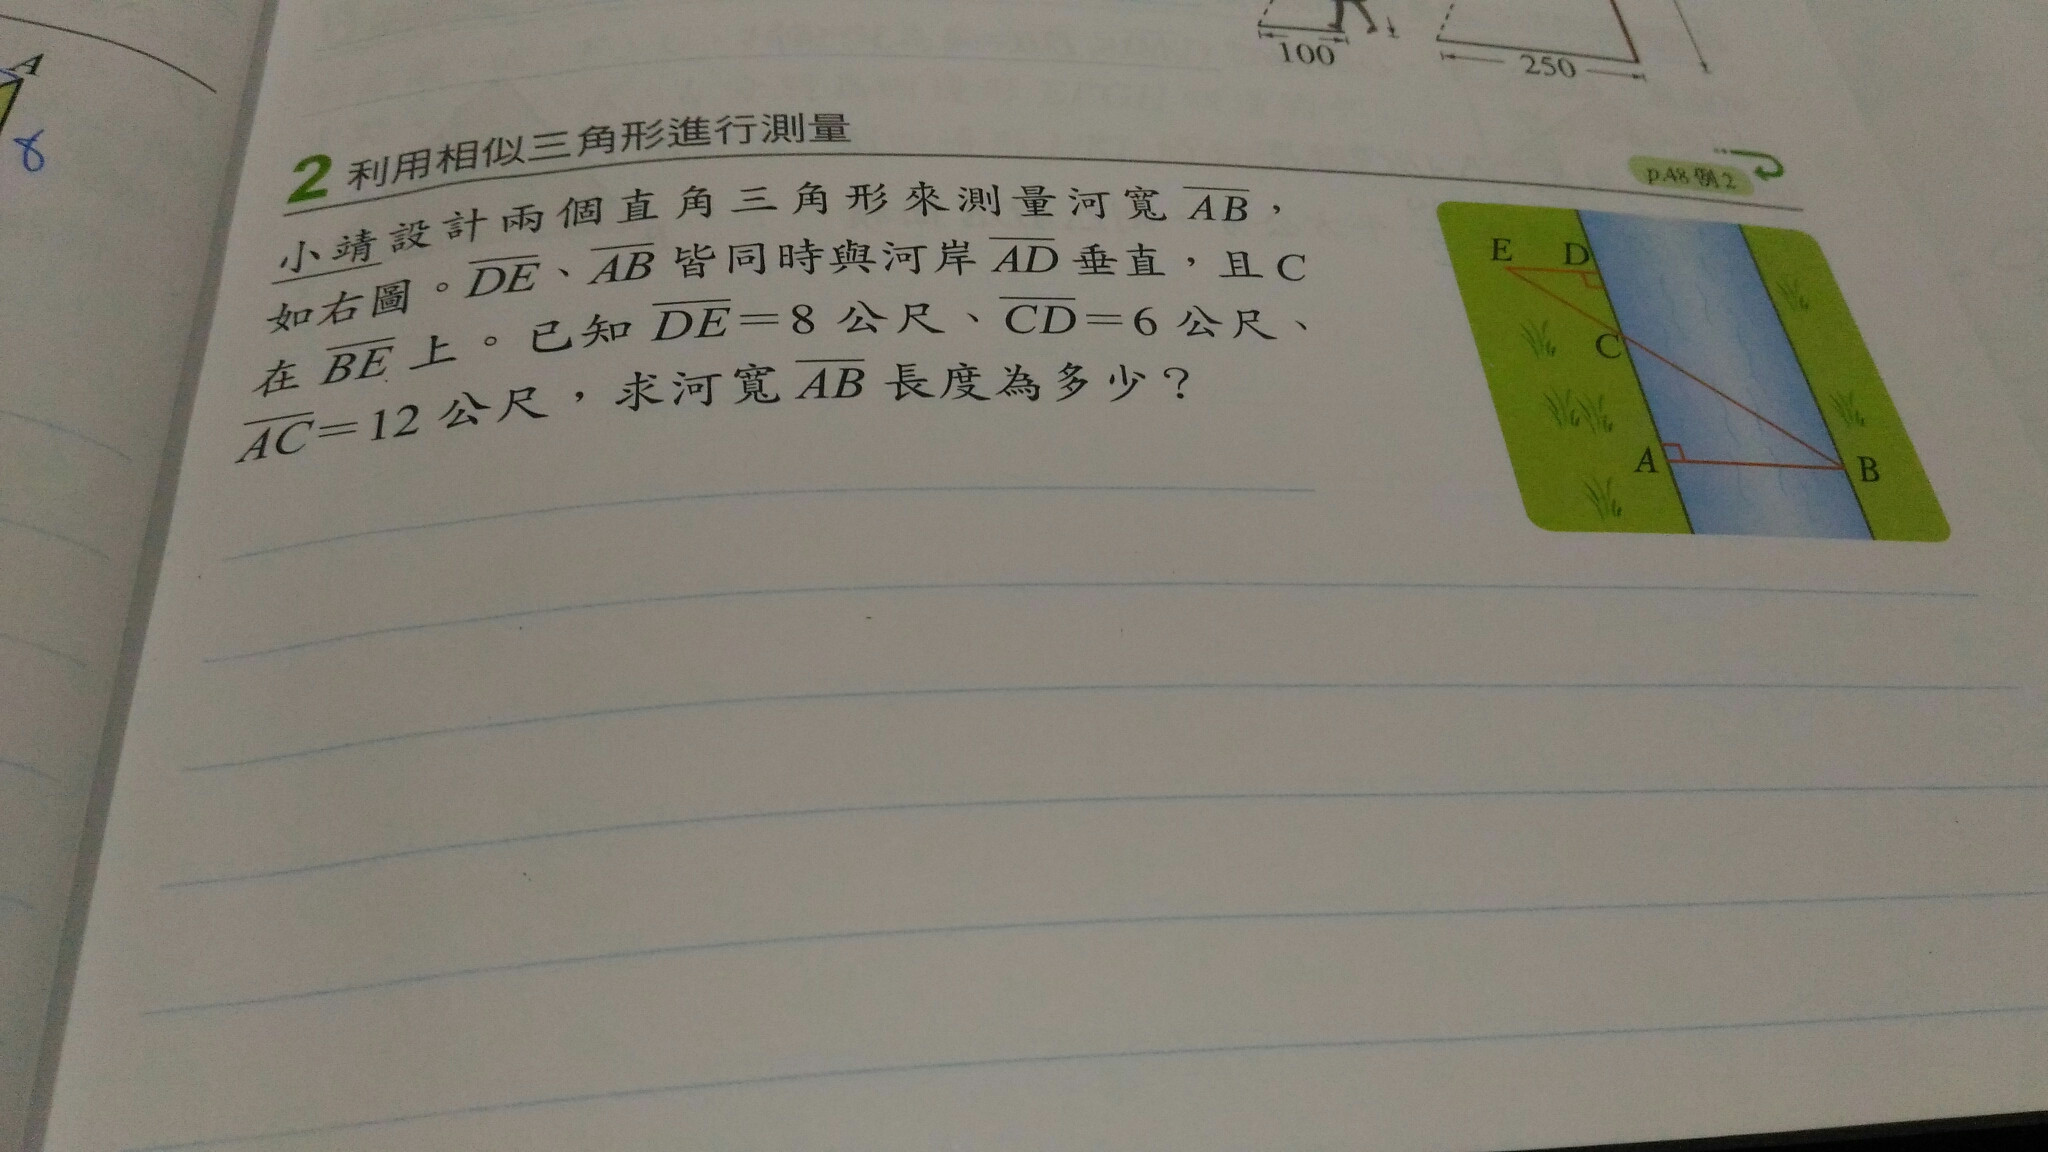 A
8
100
250
2 利用相似三角形進行測量
p.48 例2
小靖設計兩個直角三角形來測量河寬 AB，
如右圖。DE、AB 皆同時與河岸 AD 垂直，且 C
在 BE 上。已知 DE＝8 公尺、CD＝6 公尺、
AC＝12 公尺，求河寬 AB 長度為多少？
E D
C
A B